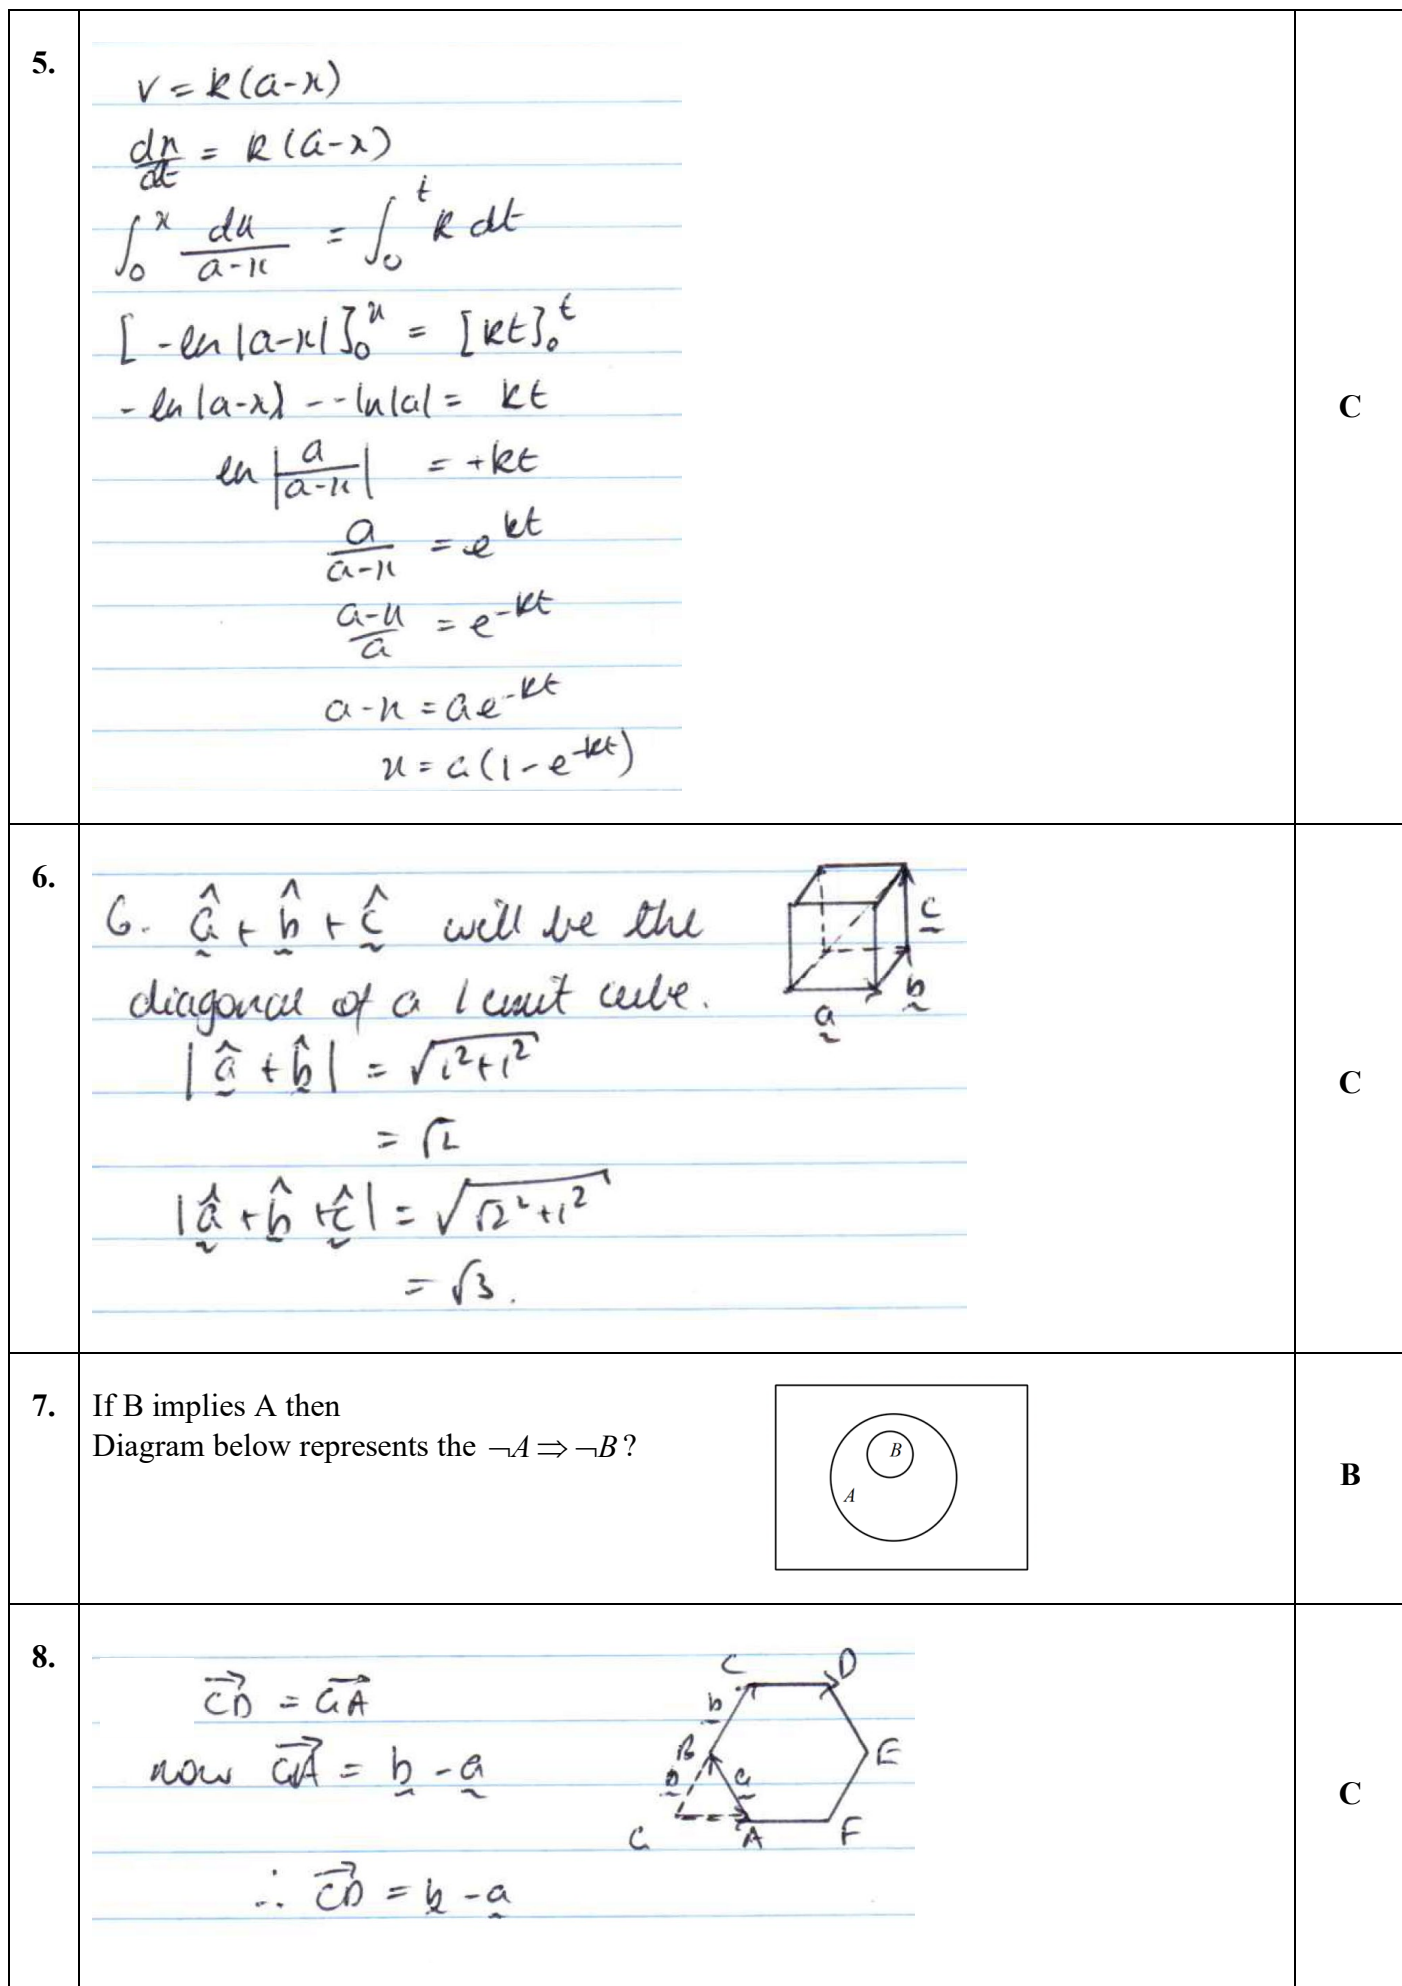 5.
v = k(a-x)
dx/dt = k(a-x)
∫₀ˣ dx/(a-x) = ∫₀ᵗ k dt
[-ln|a-x|]₀ˣ = [kt]₀ᵗ
-ln|a-x| - -ln|a| = kt
ln|a/(a-x)| = +kt
a/(a-x) = e^kt
(a-x)/a = e^-kt
a-x = ae^-kt
x = a(1-e^-kt)
C
6.
6. â + b̂ + ĉ will be the
diagonal of a 1 unit cube.
|â + b̂| = √(1²+1²)
= √2
|â + b̂ + ĉ| = √(√2²+1²)
= √3.
c
b
a
C
7.
If B implies A then
Diagram below represents the ¬A ⇒ ¬B?
B
A
B
8.
CD→ = GA→
now GA→ = b - a
∴ CD→ = b - a
C D
b
B E
b a
G A F
C